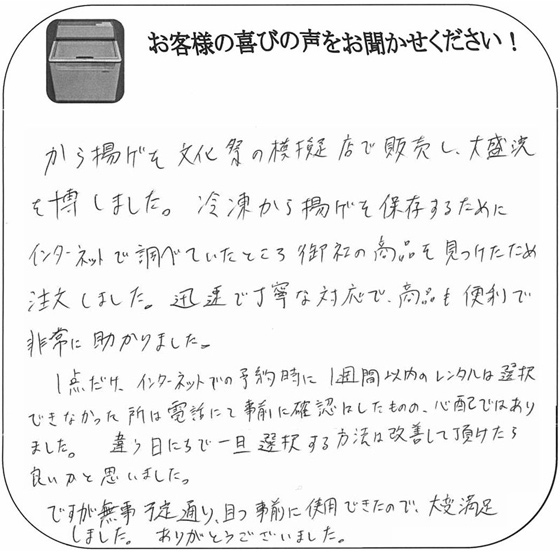 お客様の喜びの声をお聞かせください！
から揚げを文化祭の模擬店で販売し、大盛況
を博しました。冷凍から揚げを保存するために
インターネットで調べていたところ御社の商品を見つけたため
注文しました。迅速で丁寧な対応で、商品も便利で
非常に助かりました。
1点だけ、インターネットでの予約時に1週間以内のレンタルは選択
できなかった所は電話にて事前に確認はしたものの、心配ではあり
ました。違う日にちで一旦選択する方法は改善して頂けたら
良いかと思いました。
ですが無事予定通り、且つ事前に使用できたので、大変満足
しました。ありがとうございました。